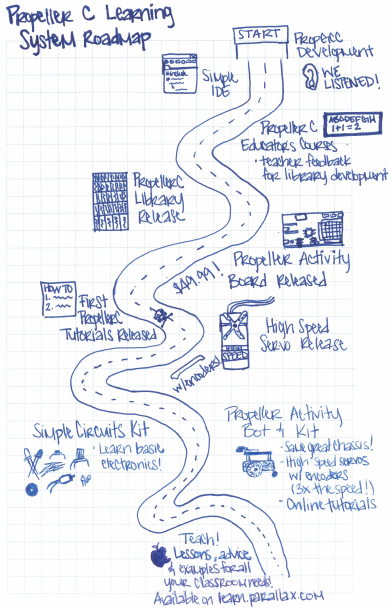 Propeller C Learning
System Roadmap
START
Simple
IDE
PropGCC
Development
WE
LISTENED!
Propeller C
Educators Courses
· teacher feedback
for library development
ABCDEFGH
1+1=2
PropellerC
Library
Release
Propeller Activity
Board Released
$49.99!
HOW TO
1.
2.
First
PropellerC
Tutorials Released
High Speed
Servo Release
HIGH
SPEED
w/encoders!
Simple Circuits Kit
· Learn basic
electronics!
Propeller Activity
Bot & Kit
- Same great chassis!
- High speed servos
w/ encoders
(3x the speed!)
- Online tutorials
Teach!
Lessons, advice
& examples for all
your classroom needs!
Available on learn.parallax.com